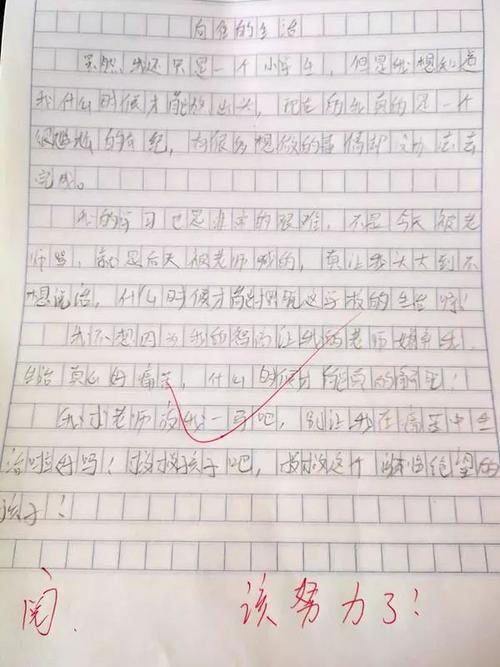 向往的生活
虽然我还只是一个小学生，但是我想知道
我什么时候才能放出头，现在的我真的是一个
很尴尬的年纪，有很多想做的事情却没办法去
完成。
我的学习也是非常的艰难，不是今天被老
师骂，就是后天被老师喊的，真让我大大到不
想说话，什么时候才能摆脱这学校的生活呀！
我不想因为我的智商让我的老师嫌弃我，
生活真的好痛苦，什么时候才能真的解脱！
我求老师放我一马吧，别让我在痛苦中生
活啦好吗！救救孩子吧，救救这个绝望的
孩子！
阅. 该努力了！